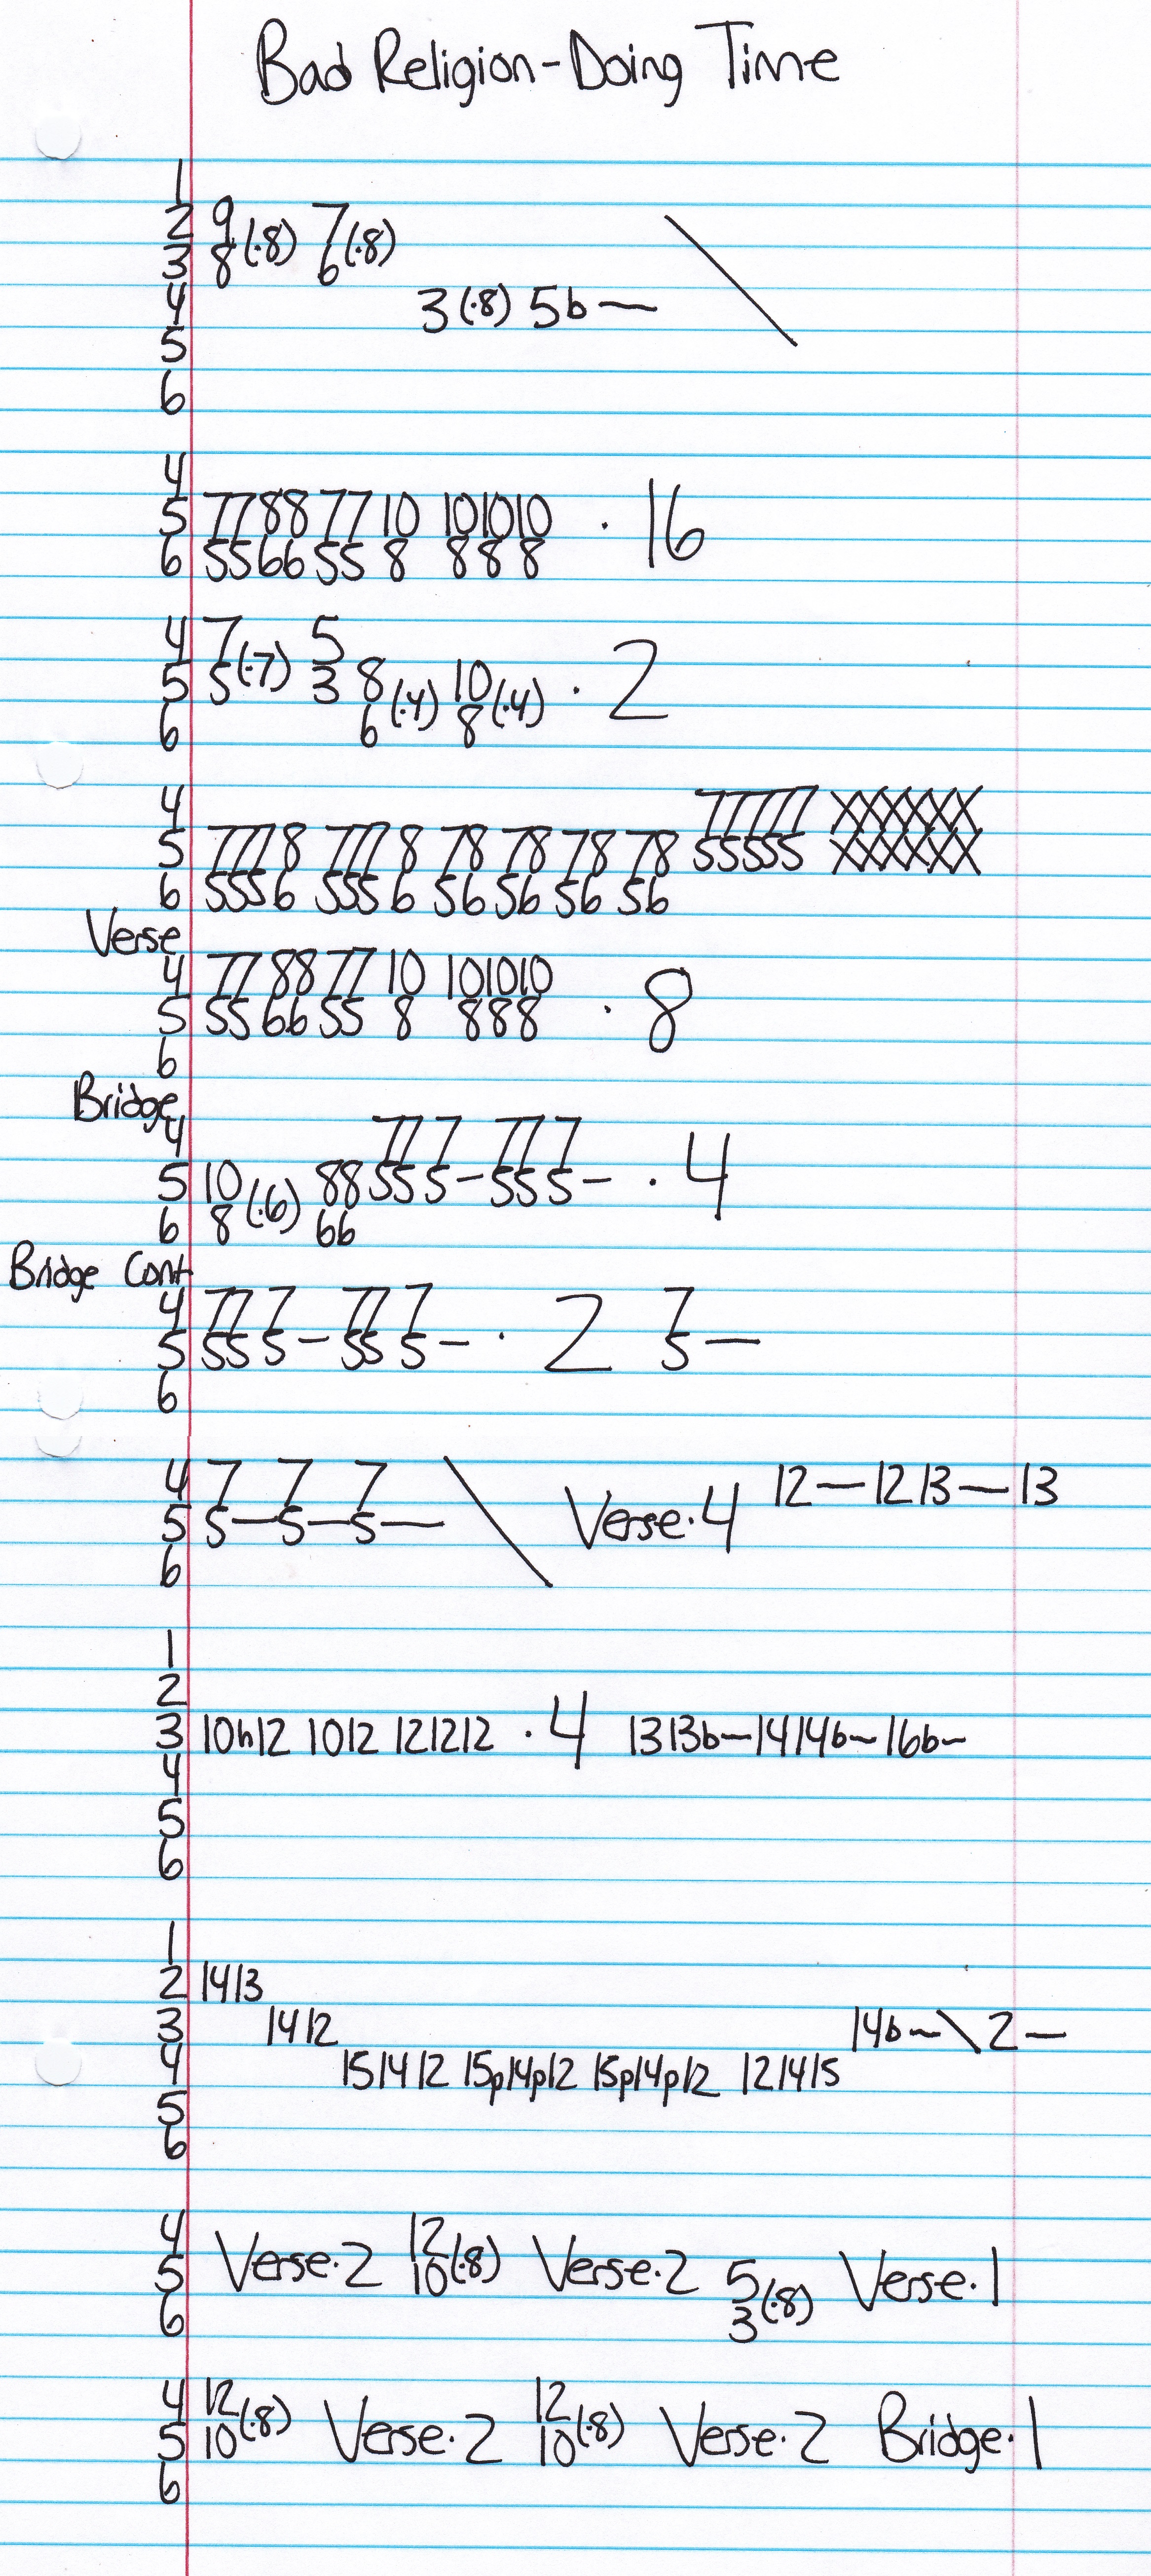 Bad Religion-Doing Time
1
2 9 7
3 8(·8) 6(·8)
4 3(·8) 5b— \
5
6
4
5 77 88 77 10 10 10 10 · 16
6 55 66 55 8 8 8 8
4 7 5
5 5(·7) 3 8 10 · 2
6 6(·4) 8(·4)
4 77777 XXXXXX
5 777 8 777 8 78 78 78 78 55555 XXXXXX
6 555 6 555 6 56 56 56 56
Verse
4 77 88 77 10 10 10 10 · 8
5 55 66 55 8 8 8 8
6
Bridge
4 777 7 777 7
5 10 88 555 5-555 5- · 4
6 8(·6) 66
Bridge Cont
4 777 7 777 7 7
5 555 5-555 5- · 2 5—
6
4 7 7 7 12—12 13—13
5 5—5—5— \ Verse·4
6
1
2
3 10h12 1012 121212 · 4 1313b—1414b—16b—
4
5
6
1
2 1413
3 1412 14b—\2—
4 151412 15p14p12 15p14p12 121415
5
6
4 12
5 Verse·2 10(·8) Verse·2 5 Verse·1
6 3(·8)
4 12 12
5 10(·8) Verse·2 10(·8) Verse·2 Bridge·1
6